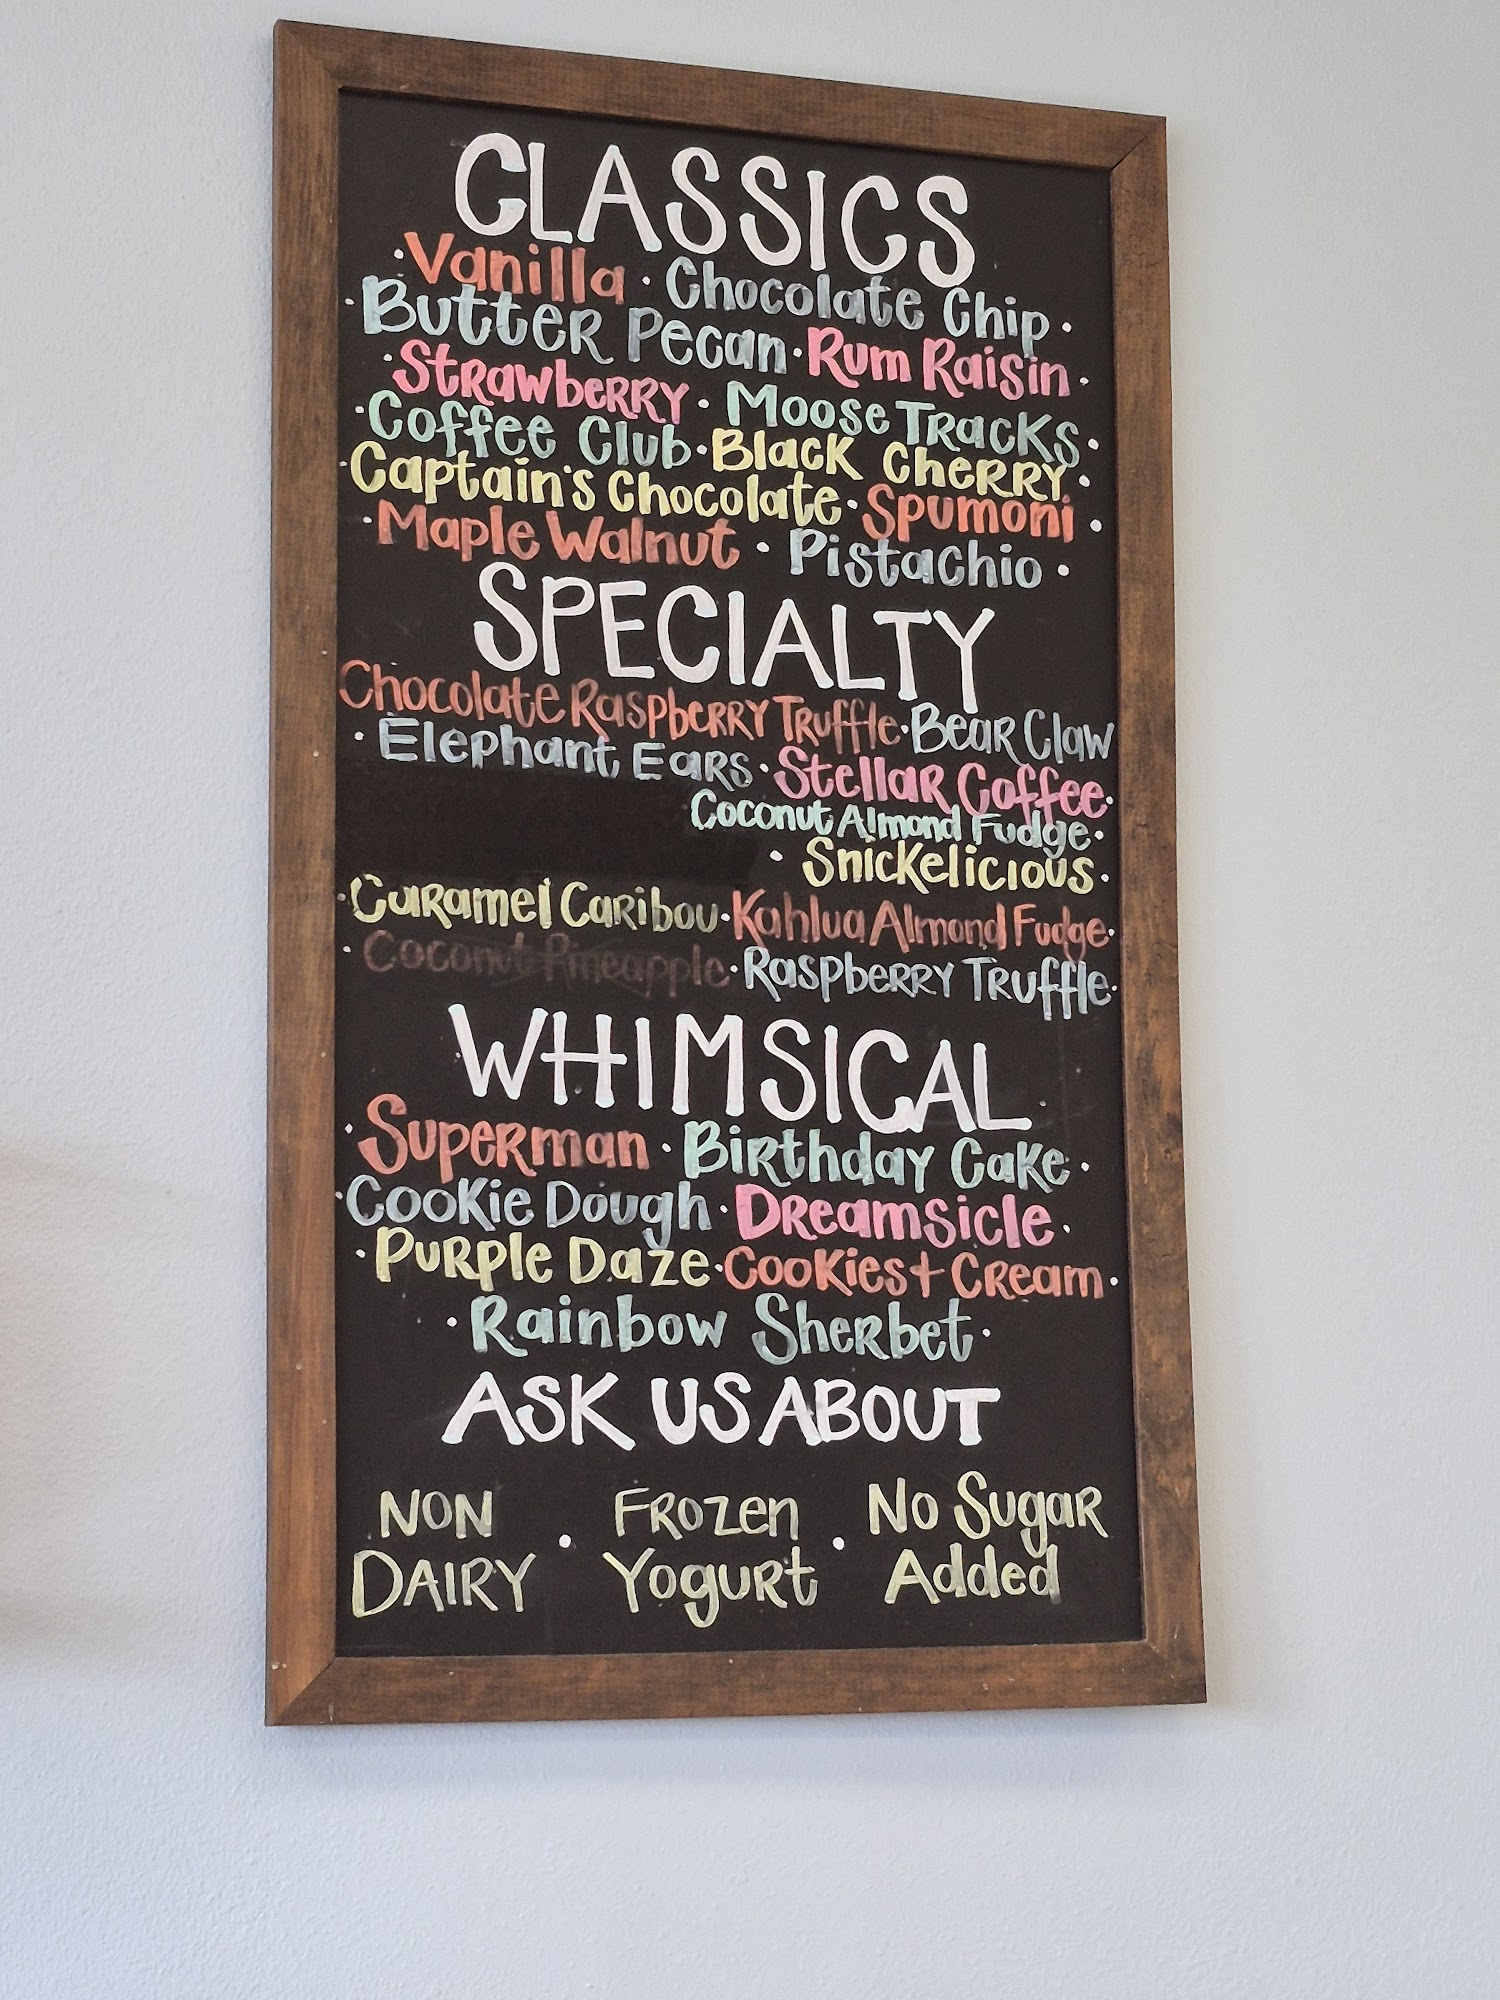 CLASSICS
· Vanilla · Chocolate Chip ·
· Butter Pecan · Rum Raisin ·
· Strawberry · Moose Tracks ·
· Coffee Club · Black Cherry ·
· Captain's Chocolate · Spumoni ·
· Maple Walnut · Pistachio ·
SPECIALTY
Chocolate Raspberry Truffle · Bear Claw
· Elephant Ears · Stellar Coffee ·
Coconut Almond Fudge ·
· Snickelicious ·
· Caramel Caribou · Kahlua Almond Fudge ·
· Coconut Pineapple · Raspberry Truffle ·
WHIMSICAL
· Superman · Birthday Cake ·
· Cookie Dough · Dreamsicle ·
· Purple Daze · Cookies + Cream ·
· Rainbow Sherbet ·
ASK US ABOUT
NON DAIRY · Frozen Yogurt · No Sugar Added